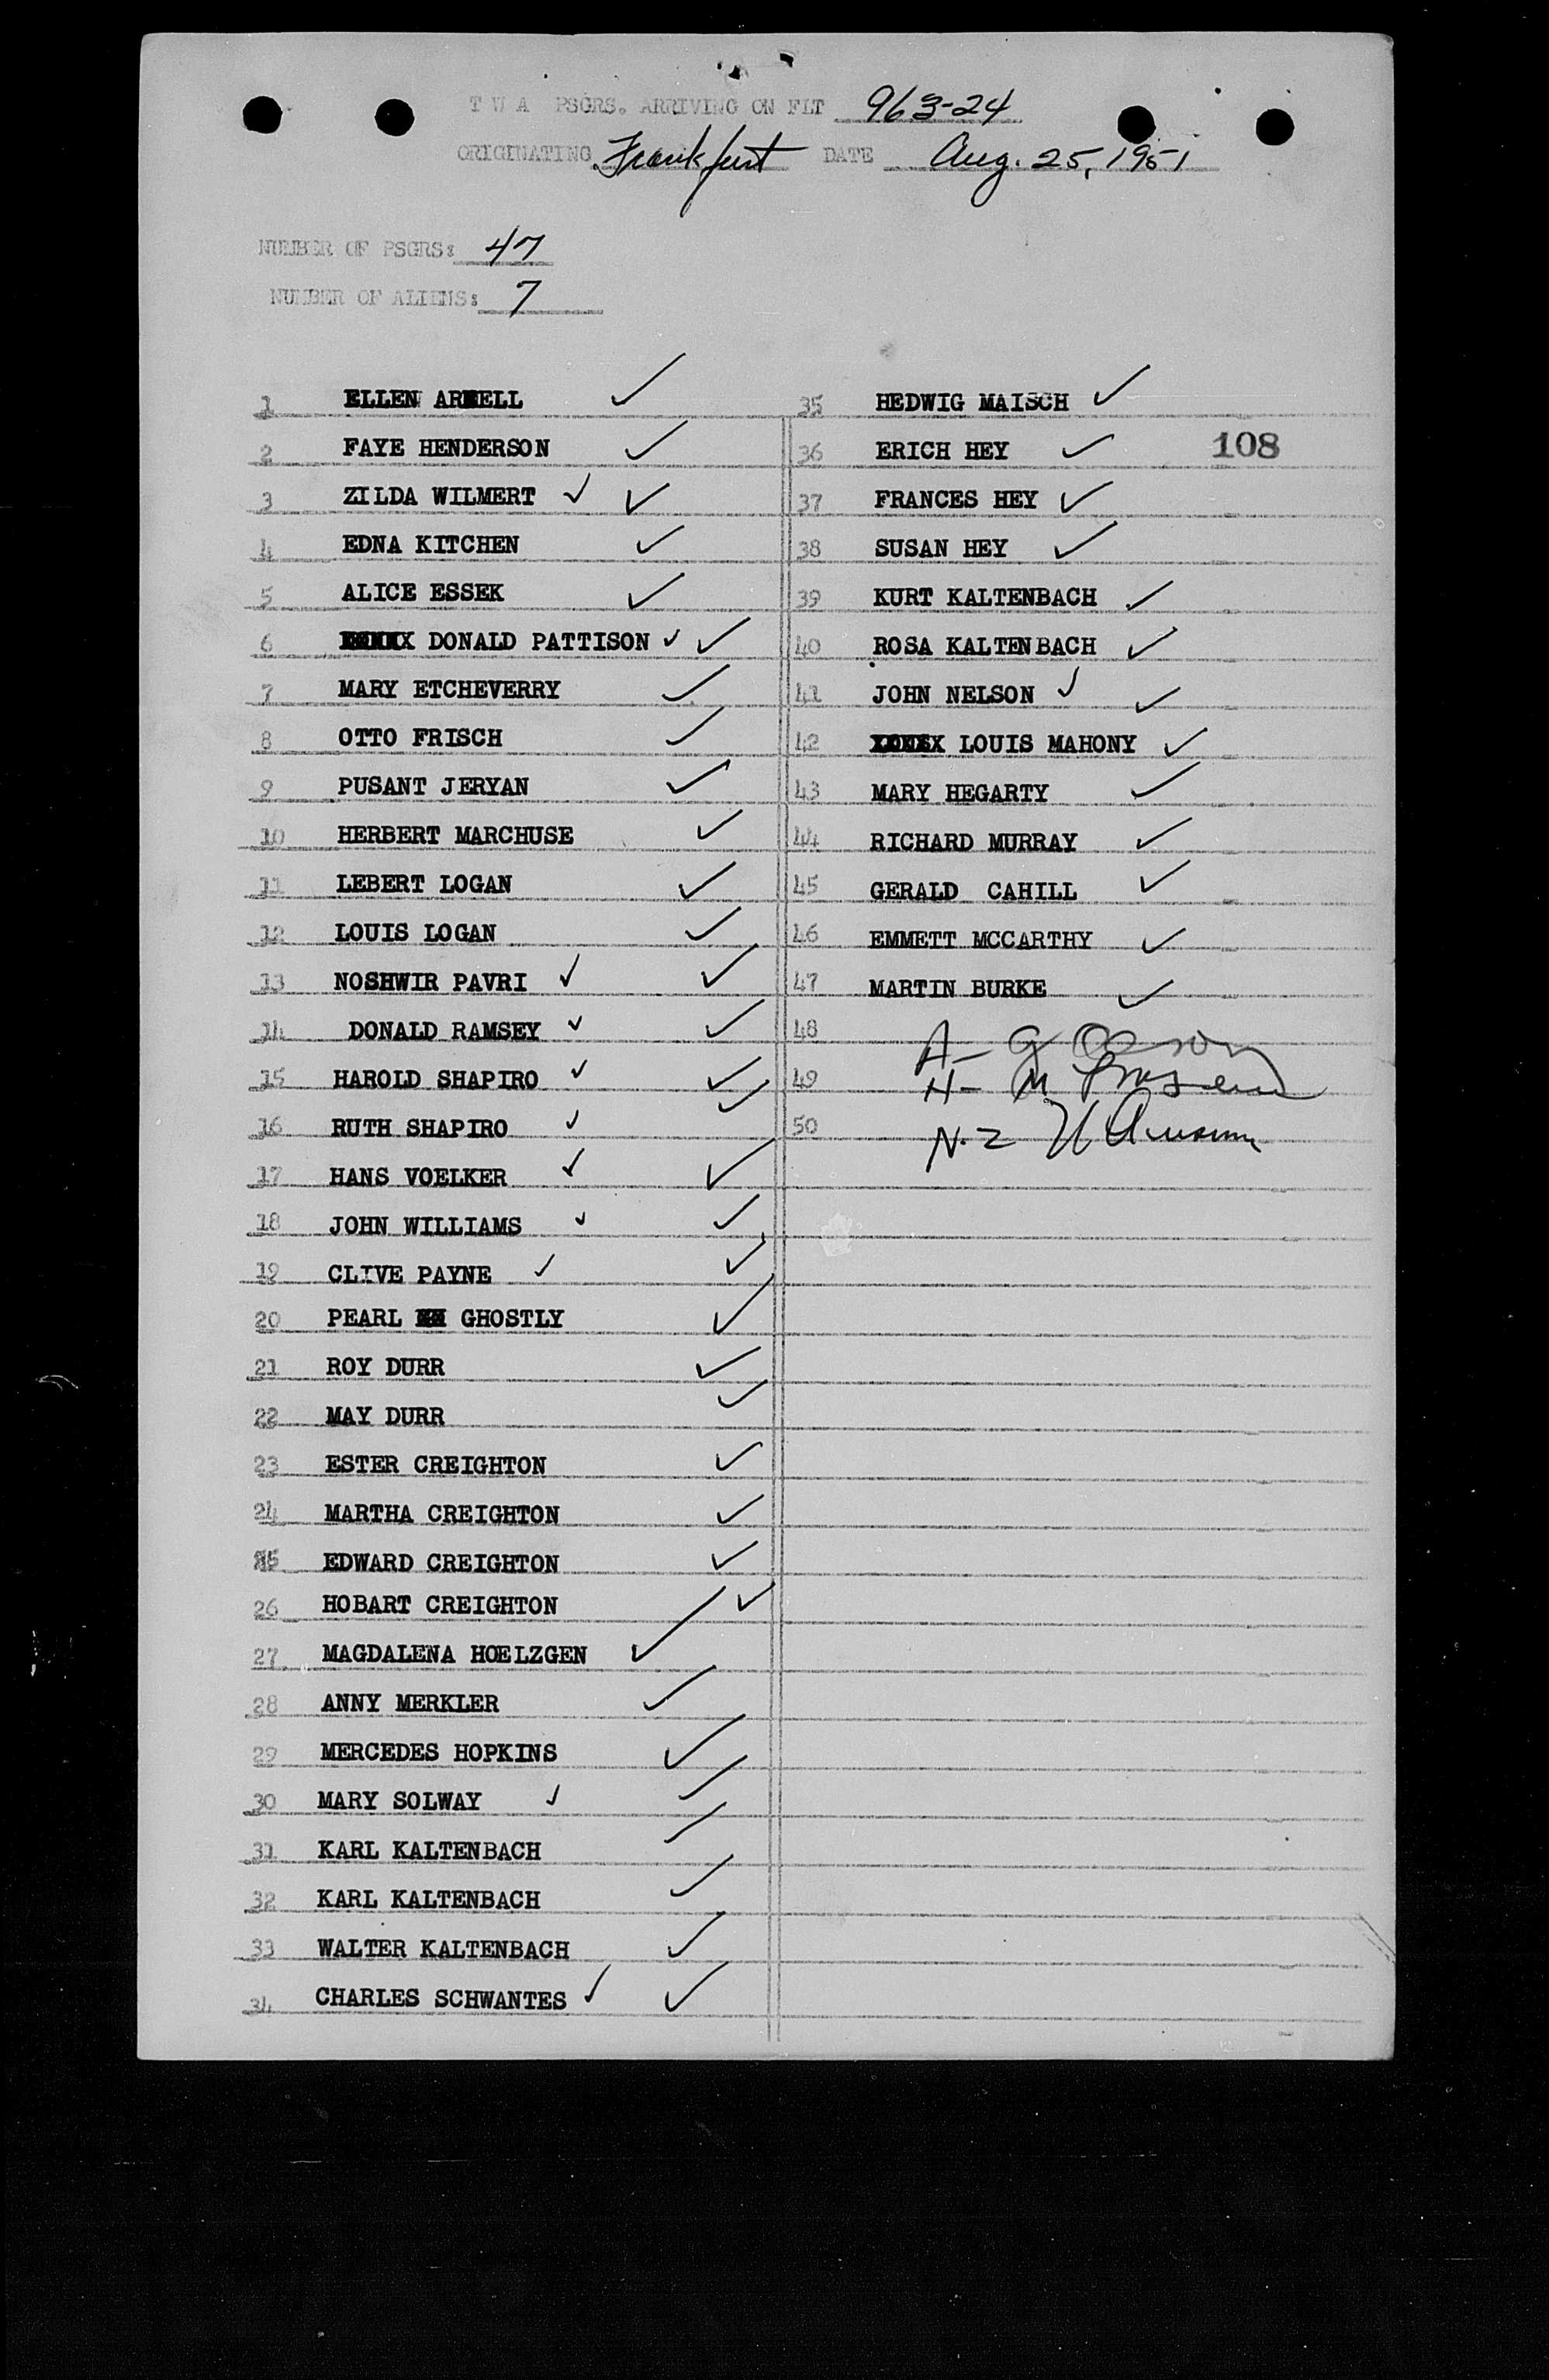 T W A PSGRS. ARRIVING ON FLT 963-24
ORIGINATING Frankfurt DATE Aug. 25, 1951
NUMBER OF PSGRS: 47
NUMBER OF ALIENS: 7
1 ELLEN
2 FAYE HENDERSON
3 ZILDA WILMERT ✓
4 EDNA KITCHEN
5 ALICE ESSEK
6 DONALD PATTISON ✓
7 MARY ETCHEVERRY
8 OTTO FRISCH
9 PUSANT JERYAN
10 HERBERT MARCHUSE
11 LEBERT LOGAN
12 LOUIS LOGAN
13 NOSHWIR PAVRI ✓
14 DONALD RAMSEY ✓
15 HAROLD SHAPIRO ✓
16 RUTH SHAPIRO ✓
17 HANS VOELKER ✓
18 JOHN WILLIAMS ✓
19 CLIVE PAYNE ✓
20 PEARL GHOSTLY
21 ROY DURR
22 MAY DURR
23 ESTER CREIGHTON
24 MARTHA CREIGHTON
25 EDWARD CREIGHTON
26 HOBART CREIGHTON
27 MAGDALENA HOELZGEN
28 ANNY MERKLER
29 MERCEDES HOPKINS
30 MARY SOLWAY ✓
31 KARL KALTENBACH
32 KARL KALTENBACH
33 WALTER KALTENBACH
34 CHARLES SCHWANTES ✓
35 HEDWIG MAISCH
108
36 ERICH HEY
37 FRANCES HEY
38 SUSAN HEY
39 KURT KALTENBACH
40 ROSA KALTENBACH
41 JOHN NELSON ✓
42 LOUIS MAHONY
43 MARY HEGARTY
44 RICHARD MURRAY
45 GERALD CAHILL
46 EMMETT MCCARTHY
47 MARTIN BURKE
48 A-
49 H-
50 N-2